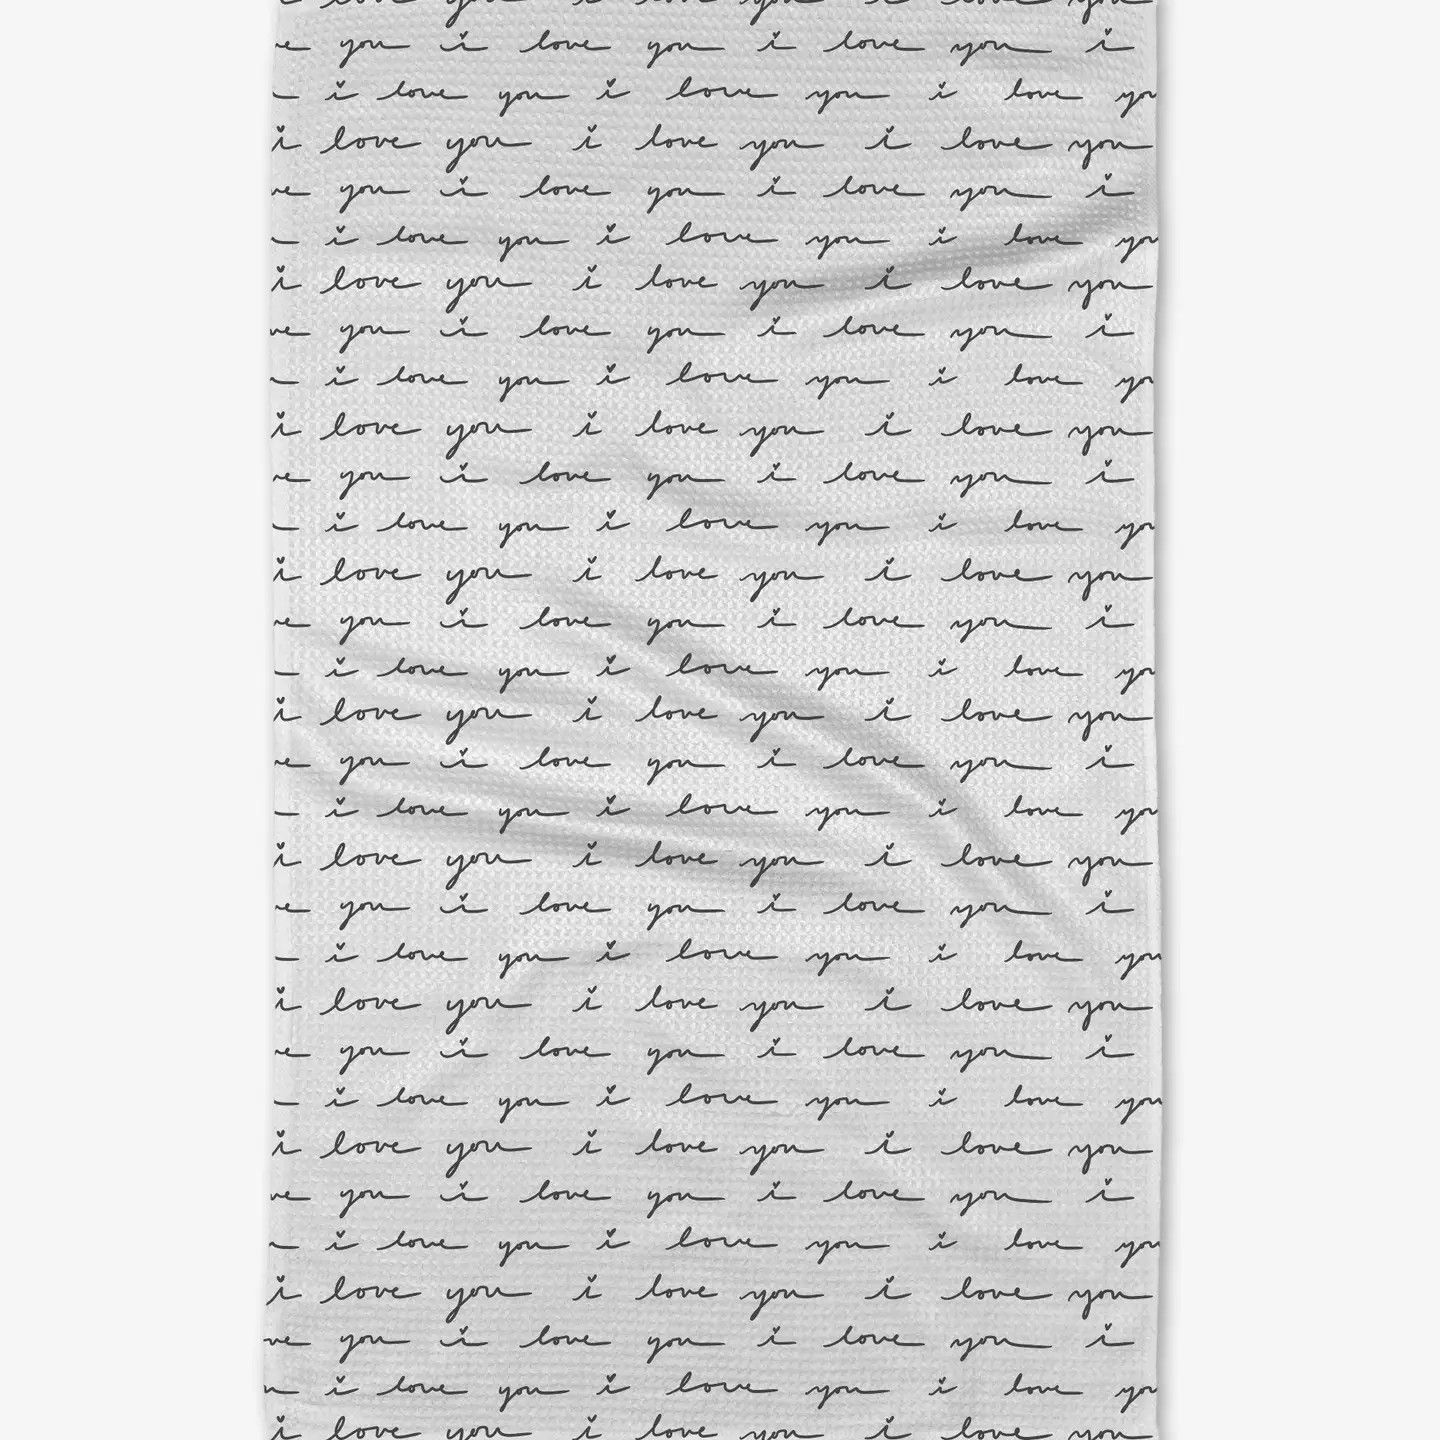 i love you i love you i love you
e you i love you i love you i
i love you i love you i love yo
i love you i love you i love you
ve you i love you i love you i
i love you i love you i love yo
i love you i love you i love you
ve you i love you i love you i
i love you i love you i love yo
i love you i love you i love you
e you i love you i love you i
i love you i love you i love yo
i love you i love you i love you
e you i love you i love you i
i love you i love you i love yo
i love you i love you i love you
e you i love you i love you i
i love you i love you i love yo
i love you i love you i love you
e you i love you i love you i
i love you i love you i love you
i love you i love you i love you
e you i love you i love you i
i love you i love you i love you
i love you i love you i love you
ve you i love you i love you i
i love you i love you i love you
i love you i love you i love you
ve you i love you i love you i
i love you i love you i love yo
i love you i love you i love you